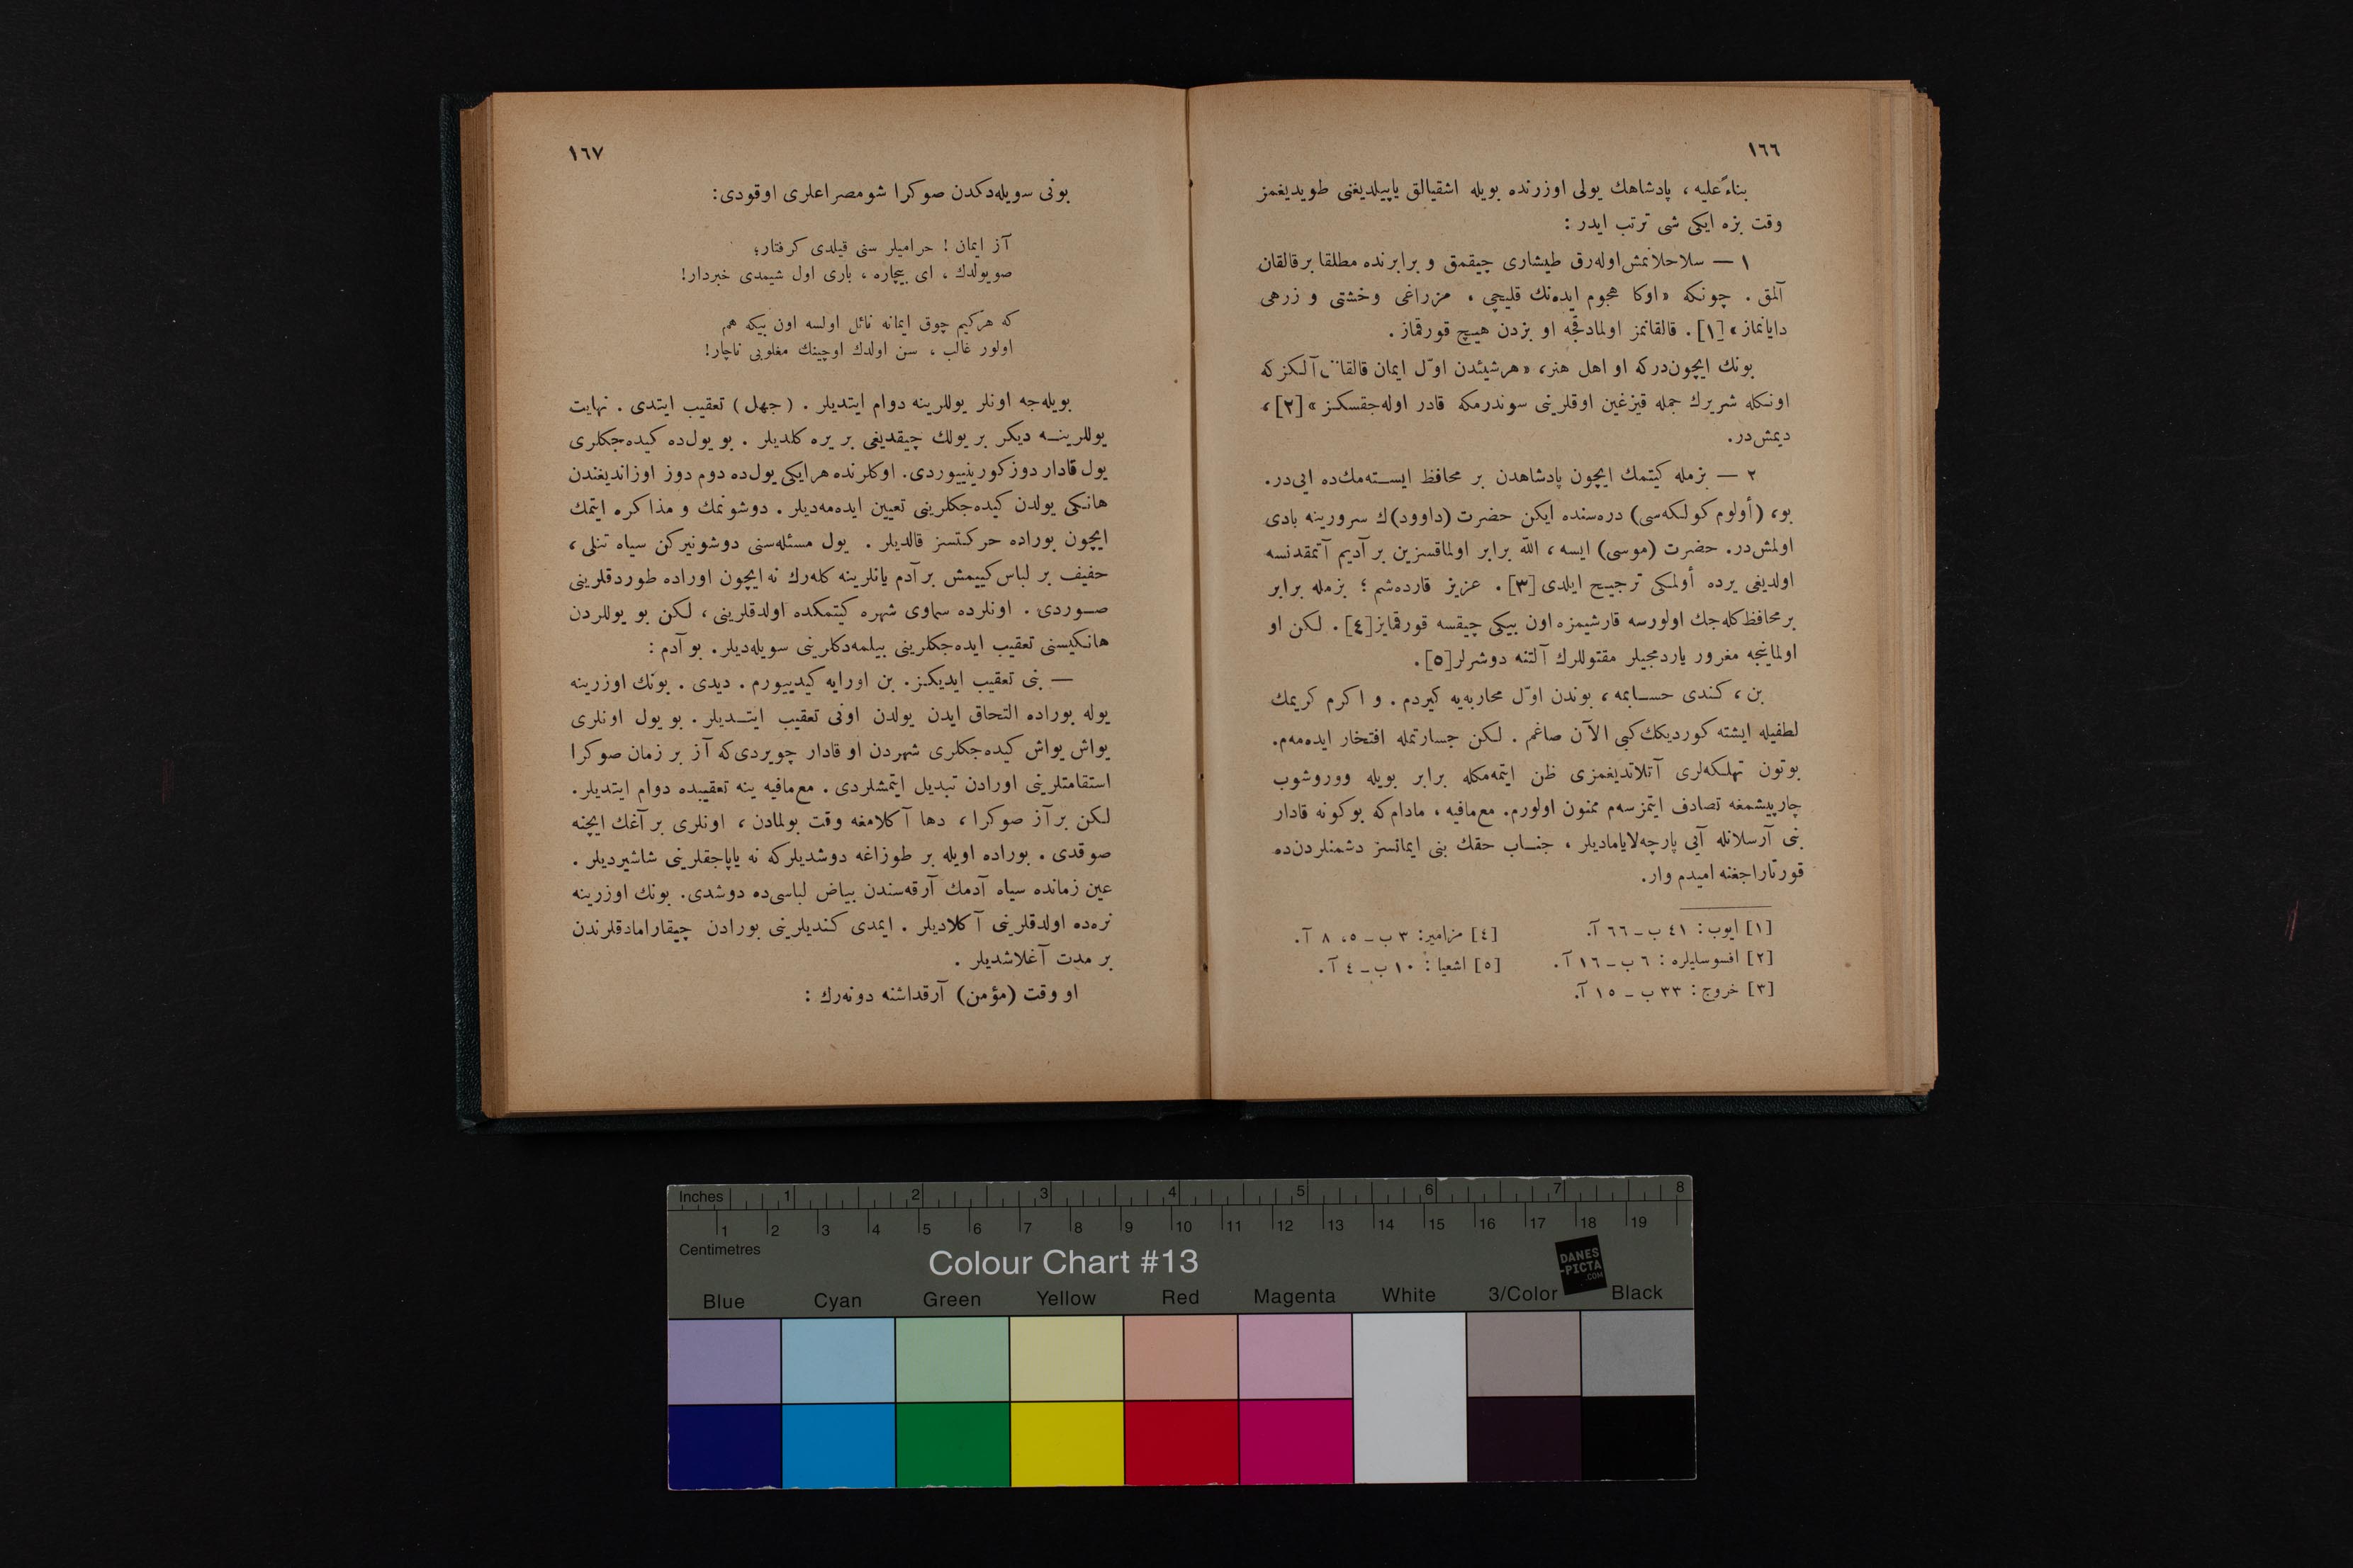 ١٦٦
بناءً علیه ، پادشاهك یولی اوزرنده بویله اشقیالق یاپیلدیغنی طویدیغمز
وقت بزه ایکی شی ترتب ایدر :
١ — سلاحلانمش اوله‌رق طیشاری چیقمق و برابرنده مطلقا بر قالقان
آلمق . چونکه «اوکا هجوم ایده‌نك قلیچی ، مزراغی وخشتی و زرهی
دایانماز» [١] . قالقانمز اولمادقجه او بزدن هیچ قورقماز .
بونك ایچون‌درکه او اهل هنر، «هر شیئدن اوّل ایمان آلکز که
اونکله شریرك جمله قیزغین اوقلرینی سوندرمکه قادر اوله‌جقسکز» [٢] ،
دیمش‌در.
٢ — بزمله کیتمك ایچون پادشاهدن بر محافظ ایسته‌مك‌ده ایی‌در.
بو، (أولوم کولکه‌سی) دره‌سنده ایکن حضرت (داوود)ك سرورینه بادی
اولمش‌در. حضرت (موسی) ایسه ، اللّه برابر اولماقسزین بر آدیم آتمقدنسه
اولدیغی یرده أولمکی ترجیح ایلدی [٣] . عزیز قارده‌شم ؛ بزمله برابر
بر محافظ کله‌جك اولورسه قارشیمزه اون بیکی چیقسه قورقمایز [٤] . لکن او
اولماینجه مغرور یاردمجیلر مقتوللرك آلتنه دوشرلر [٥] .
بن ، کندی حسابمه ، بوندن اوّل محاربه‌یه کیردم . و اکرم کریمك
لطفیله ایشته کوردیکك کبی الآن صاغم . لکن جسارتمله افتخار ایده‌مه‌م.
بوتون تهلکه‌لری آتلاتدیغمزی ظن ایتمه‌مکله برابر بویله ووروشوب
چارپیشمغه تصادف ایتمزسه‌م ممنون اولورم. مع‌مافیه ، مادام که بو کونه قادار
بنی آرسلانله آیی پارچه‌لایامادیلر ، جناب حقك بنی ایمانسز دشمنلردن‌ده
قورتاراجغنه امیدم وار.
[١] ایوب : ٤١ ب ـ ٦٦ آ.
[٢] افسوسلیلره : ٦ ب ـ ١٦ آ .
[٣] خروج : ٣٣ ب ـ ١٥ آ.
[٤] مزامیر: ٣ ب ـ ٥، ٨ آ.
[٥] اشعیا : ١٠ ب ـ ٤ آ .
١٦٧
بونی سویله‌دکدن صوکرا شو مصراعلری اوقودی :
آز ایمان ! حرامیلر سنی قیلدی کرفتار ؛
صویولدك ، ای بیچاره ، باری اول شیمدی خبردار !
که هرکیم چوق ایمانه نائل اولسه اون بیکه هم
اولور غالب ، سن اولدك اوچینك مغلوبی ناچار !
بویله‌جه اونلر یوللرینه دوام ایتدیلر . (جهل) تعقیب ایتدی . نهایت
یوللرینه دیکر بر یولك چیقدیغی بر یره کلدیلر . بو یول‌ده کیده‌جکلری
یول قادار دوز کورینییوردی. اوکلرنده هر ایکی یول‌ده دوم دوز اوزاندیغندن
هانکی یولدن کیده‌جکلرینی تعیین ایده‌مه‌دیلر . دوشونمك و مذاکره ایتمك
ایچون بوراده حرکتسز قالدیلر . یول مسئله‌سنی دوشونیرکن سیاه تنلی ،
حفیف بر لباس کییمش بر آدم یانلرینه کله‌رك نه ایچون اوراده طوردقلرینی
صوردی . اونلرده سماوی شهره کیتمکده اولدقلرینی ، لکن بو یوللردن
هانکیسنی تعقیب ایده‌جکلرینی بیلمه‌دکلرینی سویله‌دیلر . بو آدم :
— بنی تعقیب ایدیکز . بن اورایه کیدییورم . دیدی . بونك اوزرینه
یوله بوراده التحاق ایدن یولدن اونی تعقیب ایتدیلر . بو یول اونلری
یواش یواش کیده‌جکلری شهردن او قادار چویردی که آز بر زمان صوکرا
استقامتلرینی اورادن تبدیل ایتمشلردی . مع‌مافیه ینه تعقیبده دوام ایتدیلر .
لکن بر آز صوکرا ، دها آکلامغه وقت بولمادن ، اونلری بر آغك ایچنه
صوقدی . بوراده اویله بر طوزاغه دوشدیلرکه نه یاپاجقلرینی شاشیردیلر .
عین زمانده سیاه آدمك آرقه‌سندن بیاض لباسی‌ده دوشدی. بونك اوزرینه
نره‌ده اولدقلرینی آکلادیلر . ایمدی کندیلرینی بورادن چیقارامادقلرندن
بر مدت آغلاشدیلر .
او وقت (مؤمن) آرقداشنه دونه‌رك :
Inches 1 2 3 4 5 6 7 8
1 2 3 4 5 6 7 8 9 10 11 12 13 14 15 16 17 18 19
Centimetres
Colour Chart #13
DANES
-PICTA
.COM
Blue Cyan Green Yellow Red Magenta White 3/Color Black